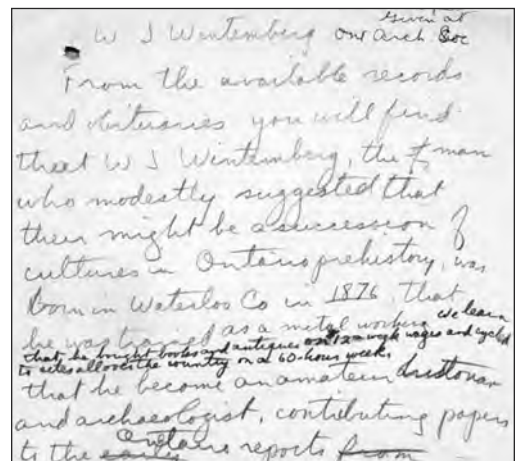 Given at
W J Wintemberg Ont Arch. Soc
From the available records
and obituaries you will find
that W J Wintemberg, the man
who modestly suggested that
their might be a succession of
cultures in Ontario prehistory, was
Born in Waterloo Co in 1876, that
he was trained as a metal working we learn
that he bought books and antiques on 12 a week wages and cycled
to sites all over the country on a 60-hour week.
that he become an amateur historian
and archaeologist, contributing papers
to the Ontario reports from